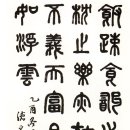 飯疏食飲
枕之樂亦在
不義而富
如浮雲
乙酉冬